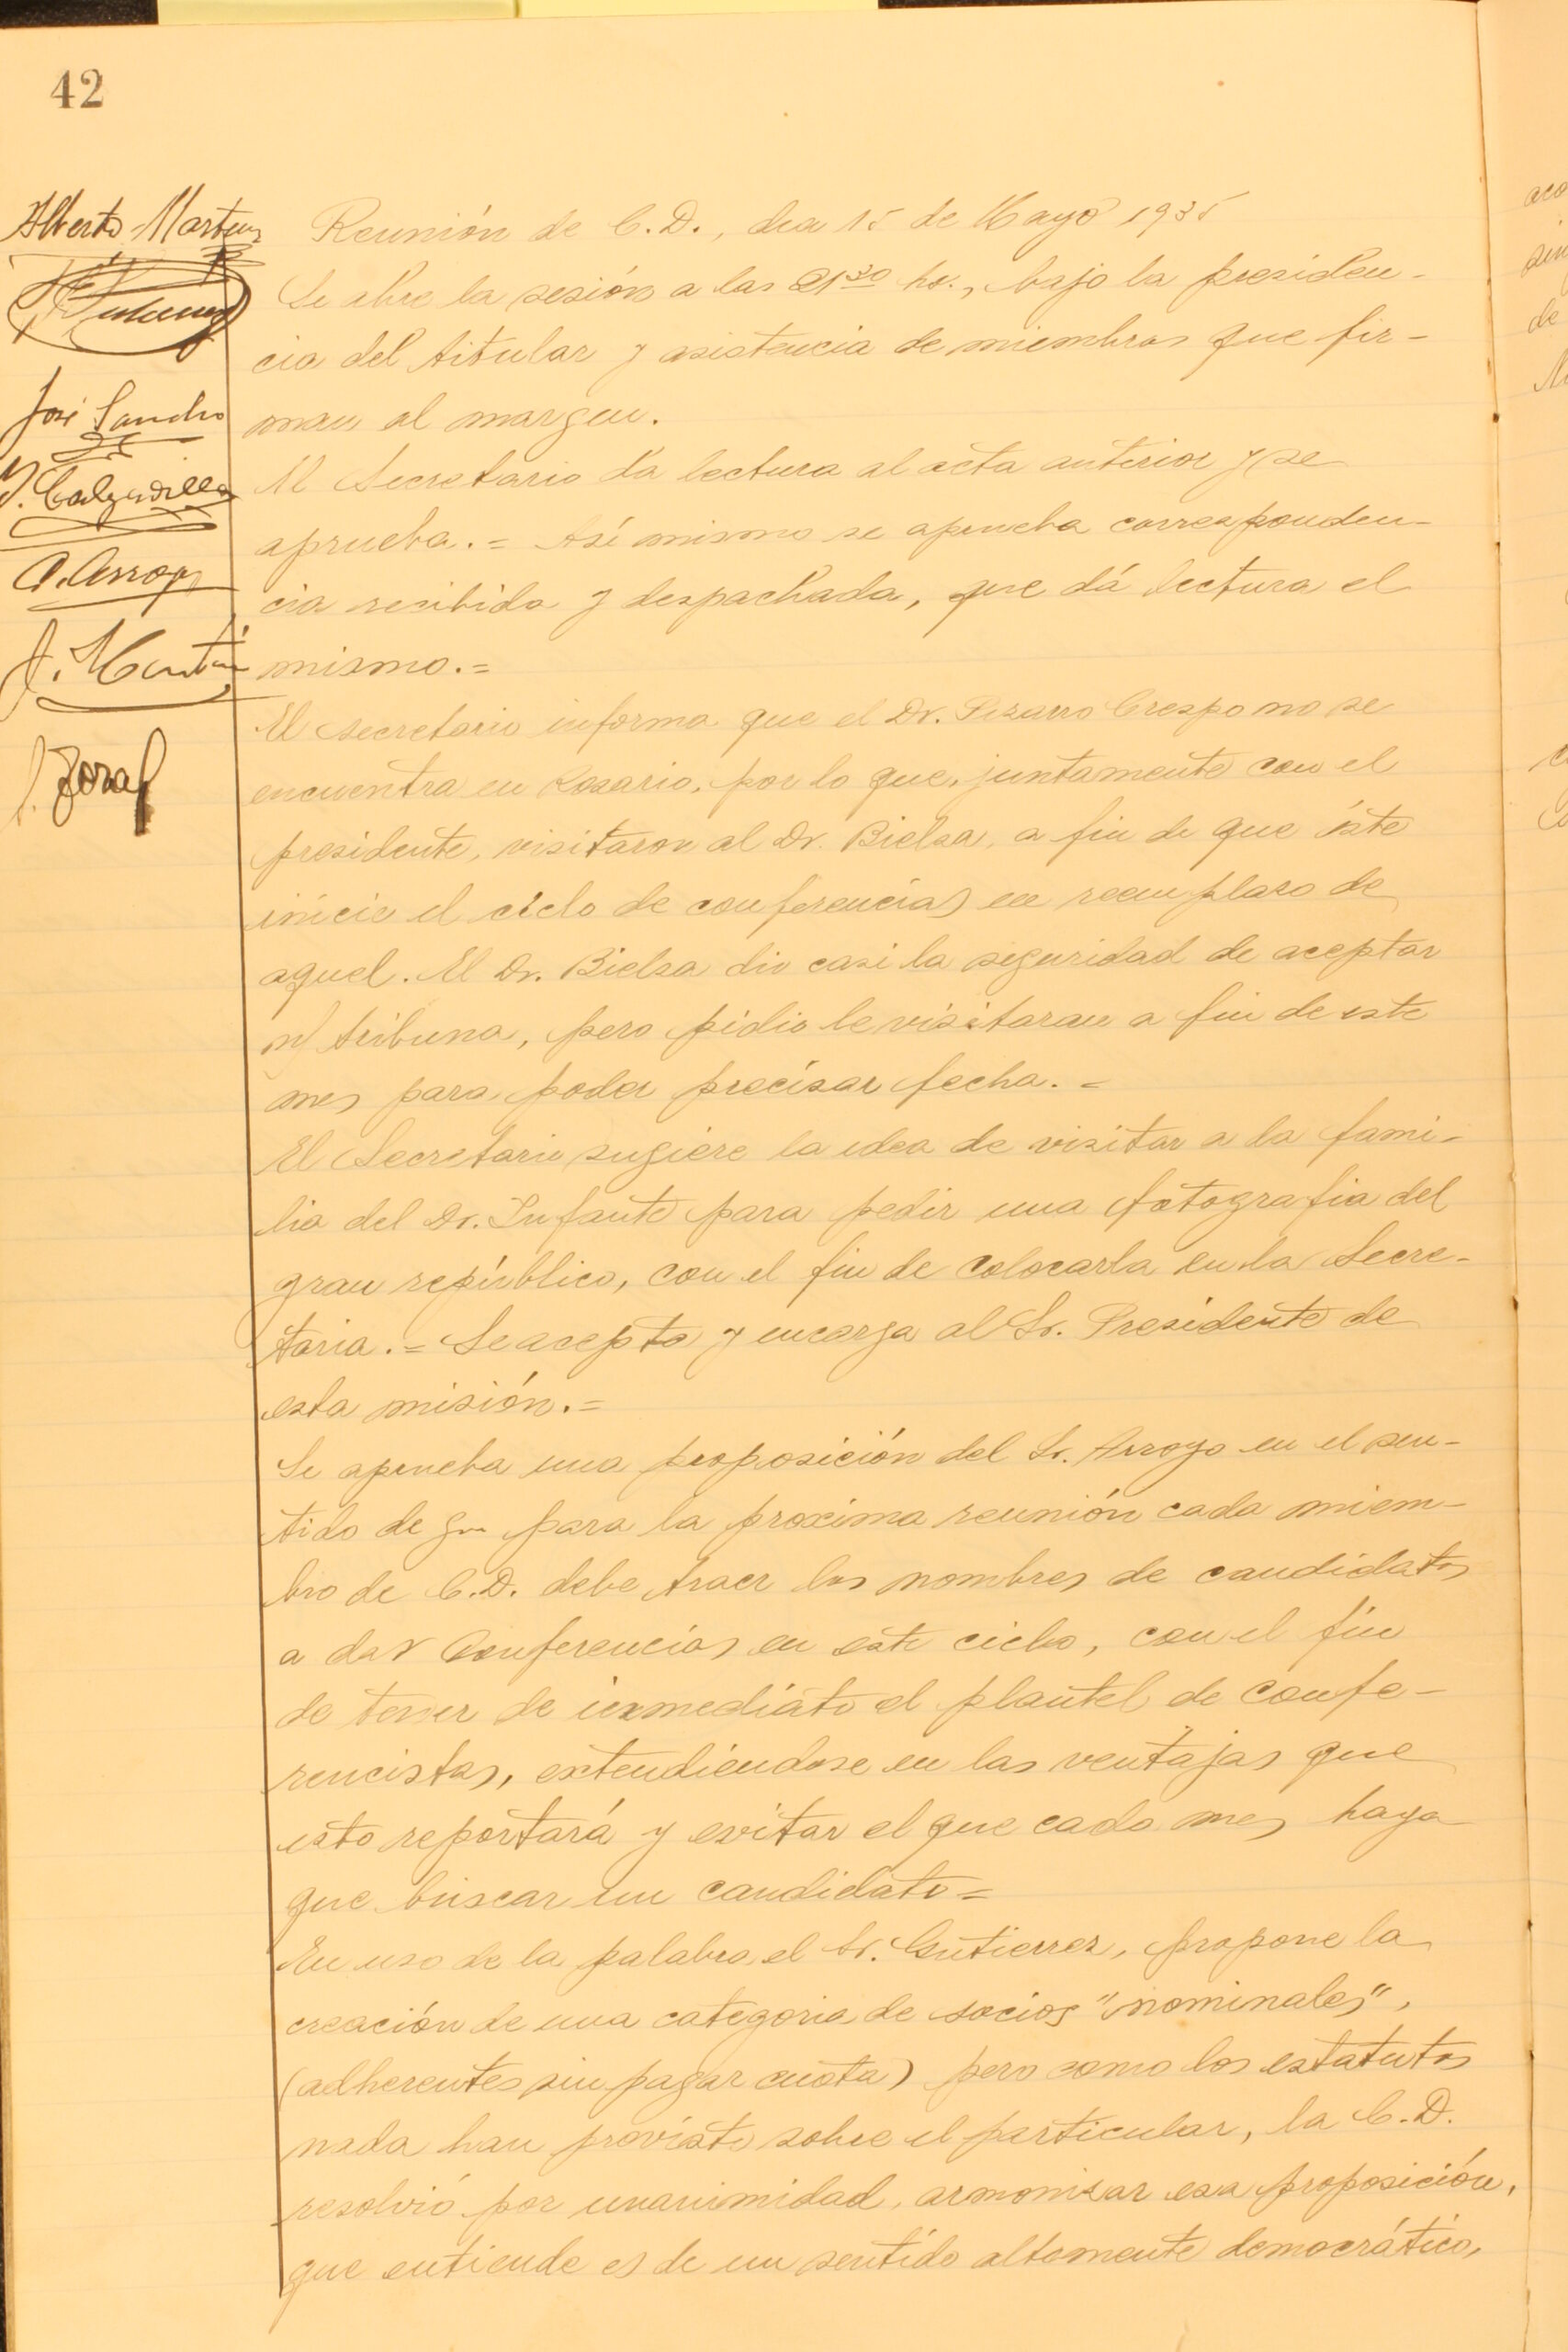 42
Alberto Martens
José Sancho
J. Calzadilla
A. Arroyo
J. Martín
Reunión de C.D., dia 15 de Mayo 1935
Se abre la sesión a las 21³⁰ hs., bajo la presiden-
cia del titular y asistencia de miembros que fir-
man al margen.
El Secretario da lectura al acta anterior y se
aprueba.= Así mismo se aprueba corresponden-
cia recibida y despachada, que dá lectura el
mismo.=
El secretario informa que el Dr. Pizarro Crespo no se
encuentra en Rosario, por lo que, juntamente con el
presidente, visitaron al Dr. Bielsa, a fin de que éste
inicie el ciclo de conferencias en reemplazo de
aquel. El Dr. Bielsa dio casi la seguridad de aceptar
n/ tribuna, pero pidio le visitaran a fin de este
mes para poder precisar fecha.=
El Secretario sugiere la idea de visitar a la fami-
lia del Dr. Infante para pedir una fotografia del
gran repúblico, con el fin de colocarla en la Secre-
taria.= Se acepta y encarga al Sr. Presidente de
esta misión.=
Se aprueba una proposición del Sr. Arroyo en el sen-
tido de que para la proxima reunión cada miem-
bro de C.D. debe traer los nombres de candidatos
a dar Conferencias en este ciclo, con el fin
de tener de inmediato el plantel de confe-
rencistas, extendiendose en las ventajas que
esto reportará y evitar el que cada mes haya
que buscar un candidato=
En uso de la palabra el Sr. Gutierrez, propone la
creación de una categoria de socios "nominales",
(adherentes sin pagar cuota) pero como los estatutos
nada han previsto sobre el particular, la C.D.
resolvió por unanimidad, armonizar esa proposición,
que entiende es de un sentido altamente democrático,